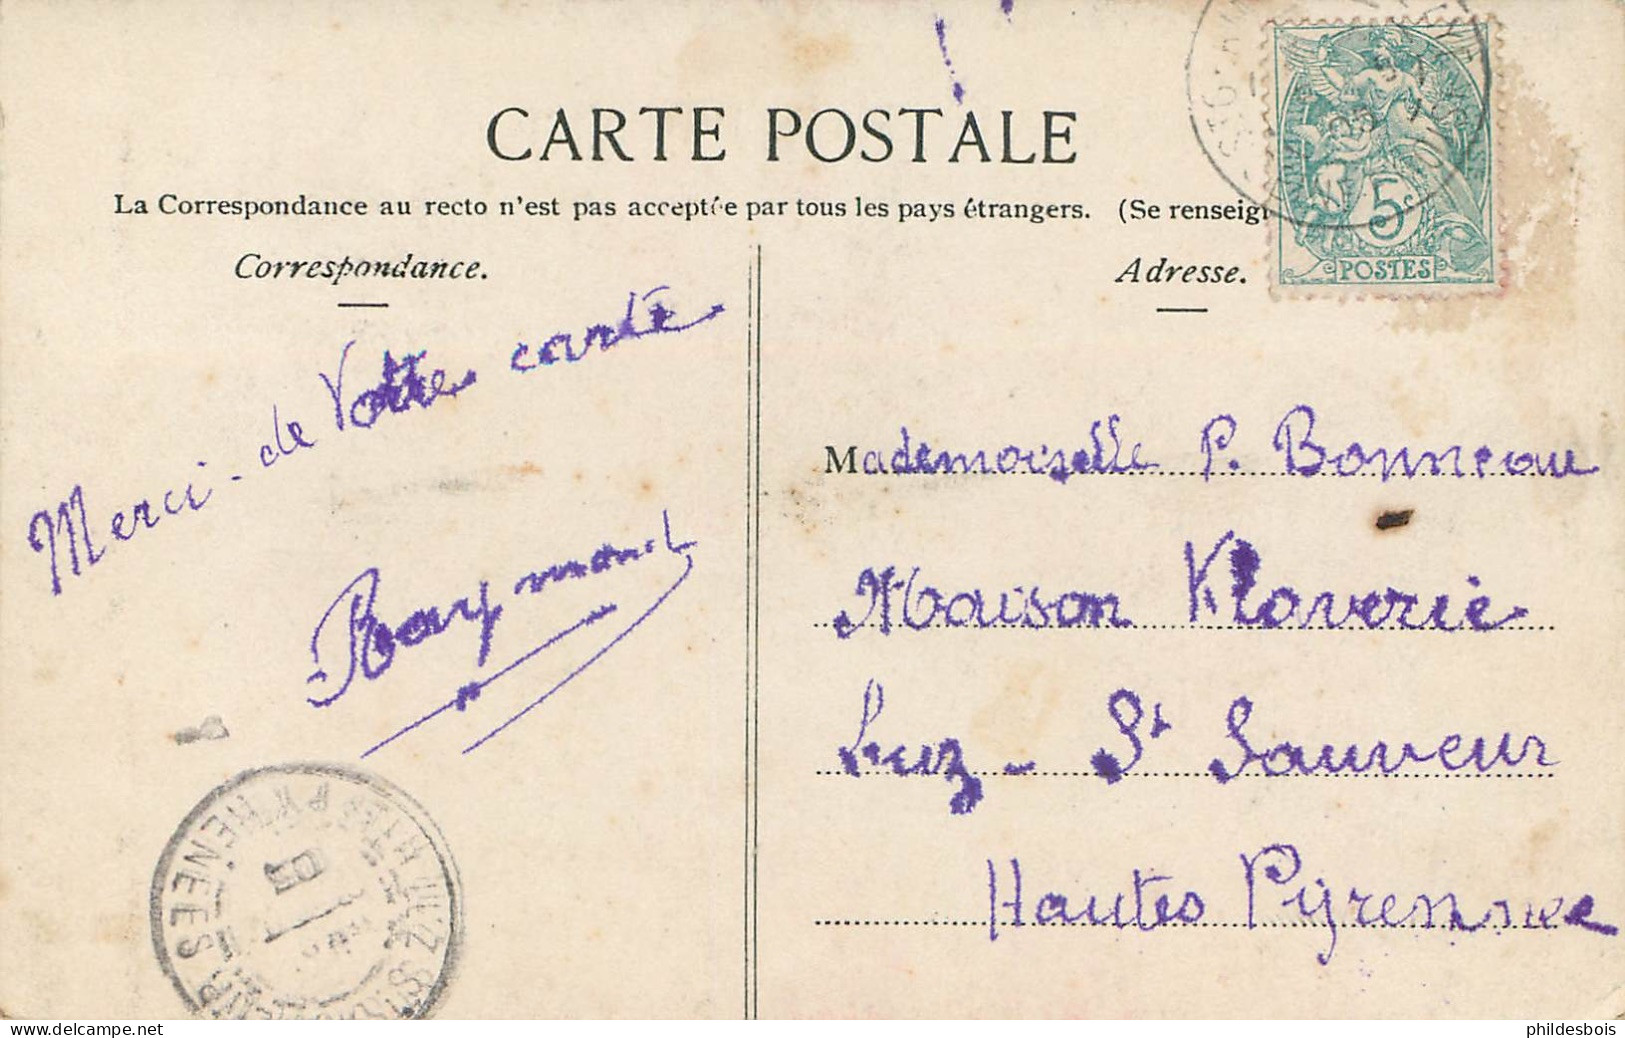 CARTE POSTALE
La Correspondance au recto n'est pas acceptée par tous les pays étrangers. (Se renseign
Correspondance.
Adresse.
5c
POSTES
Merci - de Votre carte
Raymond
Mademoiselle P. Bonneau
Maison Klaverie
Luz - St Sauveur
Hautes Pyrennee
LUZ ST SAUVEUR HTES PYRÉNÉES
05
phildesbois